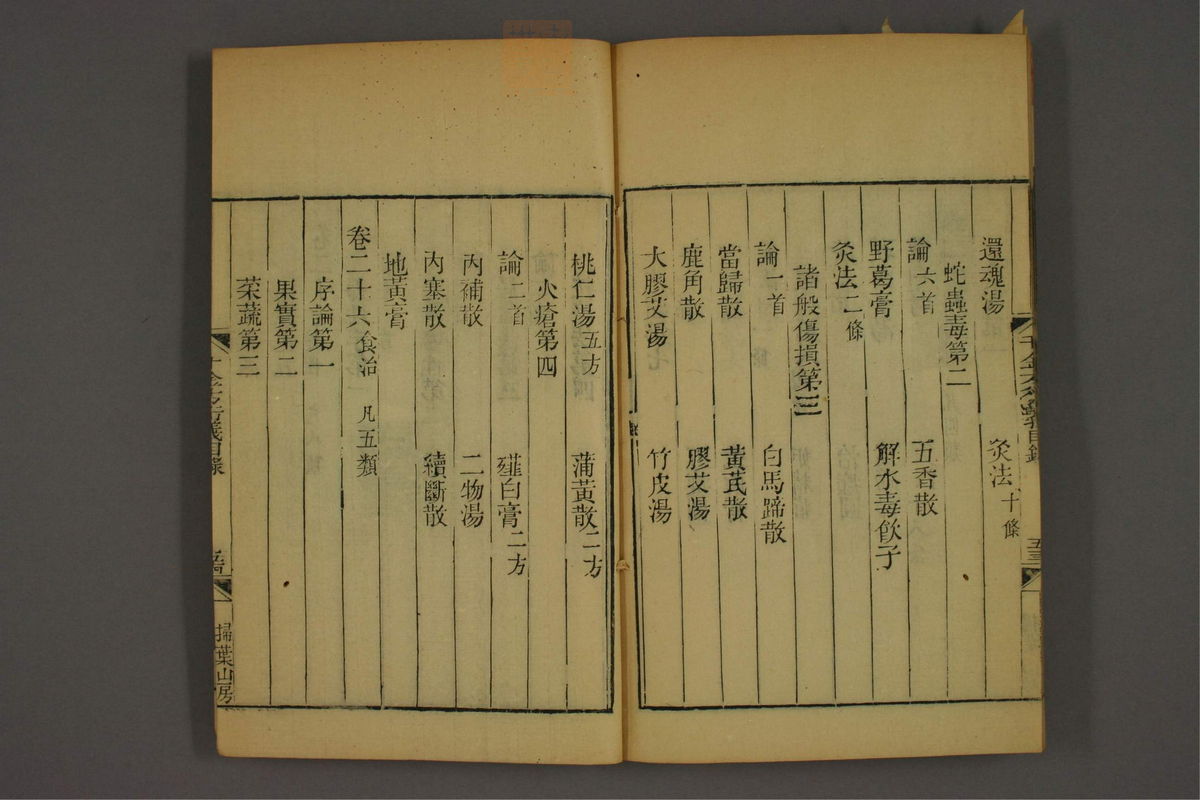 還魂湯　灸法十條
蛇蟲毒第二
論六首　五香散
野葛膏　解水毒飲子
灸法二條
諸般傷損第三
論一首　白馬蹄散
當歸散　黃芪散
鹿角散　膠艾湯
大膠艾湯　竹皮湯
桃仁湯五方　蒲黃散二方
火瘡第四
論二首　薤白膏二方
內補散　二物湯
內塞散　續斷散
地黃膏
卷二十六食治　凡五類
序論第一
果實第二
菜蔬第三
千金方衍義目錄
掃葉山房